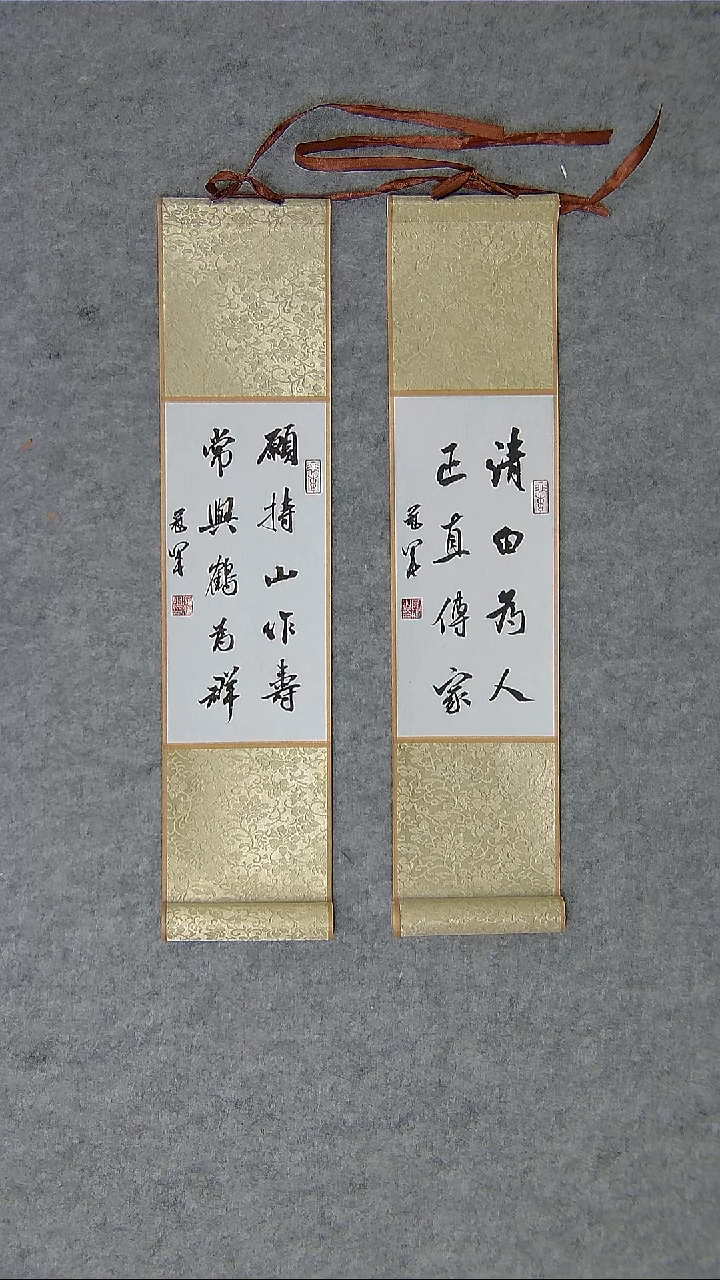 清白為人
正直傳家
冠軍
願持山作壽
常與鶴為群
冠軍